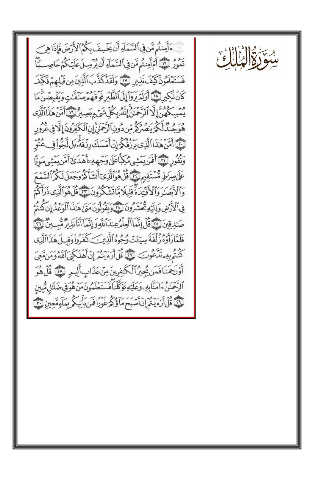 سُورَةُ المُلْكِ
ءَأَمِنتُم مَّن فِى ٱلسَّمَآءِ أَن يَخْسِفَ بِكُمُ ٱلْأَرْضَ فَإِذَا هِىَ
تَمُورُ ١٦ أَمْ أَمِنتُم مَّن فِى ٱلسَّمَآءِ أَن يُرْسِلَ عَلَيْكُمْ حَاصِبًا
فَسَتَعْلَمُونَ كَيْفَ نَذِيرِ ١٧ وَلَقَدْ كَذَّبَ ٱلَّذِينَ مِن قَبْلِهِمْ فَكَيْفَ
كَانَ نَكِيرِ ١٨ أَوَلَمْ يَرَوْا۟ إِلَى ٱلطَّيْرِ فَوْقَهُمْ صَٰٓفَّٰتٍ وَيَقْبِضْنَ مَا
يُمْسِكُهُنَّ إِلَّا ٱلرَّحْمَٰنُ إِنَّهُۥ بِكُلِّ شَىْءٍۭ بَصِيرٌ ١٩ أَمَّنْ هَٰذَا ٱلَّذِى
هُوَ جُندٌ لَّكُمْ يَنصُرُكُم مِّن دُونِ ٱلرَّحْمَٰنِ إِنِ ٱلْكَٰفِرُونَ إِلَّا فِى غُرُورٍ
٢٠ أَمَّنْ هَٰذَا ٱلَّذِى يَرْزُقُكُمْ إِنْ أَمْسَكَ رِزْقَهُۥ بَل لَّجُّوا۟ فِى عُتُوٍّ
وَنُفُورٍ ٢١ أَفَمَن يَمْشِى مُكِبًّا عَلَىٰ وَجْهِهِۦٓ أَهْدَىٰٓ أَمَّن يَمْشِى سَوِيًّا
عَلَىٰ صِرَٰطٍ مُّسْتَقِيمٍ ٢٢ قُلْ هُوَ ٱلَّذِىٓ أَنشَأَكُمْ وَجَعَلَ لَكُمُ ٱلسَّمْعَ
وَٱلْأَبْصَٰرَ وَٱلْأَفْـِٔدَةَ قَلِيلًا مَّا تَشْكُرُونَ ٢٣ قُلْ هُوَ ٱلَّذِى ذَرَأَكُمْ
فِى ٱلْأَرْضِ وَإِلَيْهِ تُحْشَرُونَ ٢٤ وَيَقُولُونَ مَتَىٰ هَٰذَا ٱلْوَعْدُ إِن كُنتُمْ
صَٰدِقِينَ ٢٥ قُلْ إِنَّمَا ٱلْعِلْمُ عِندَ ٱللَّهِ وَإِنَّمَآ أَنَا۠ نَذِيرٌ مُّبِينٌ ٢٦
فَلَمَّا رَأَوْهُ زُلْفَةً سِيٓـَٔتْ وُجُوهُ ٱلَّذِينَ كَفَرُوا۟ وَقِيلَ هَٰذَا ٱلَّذِى
كُنتُم بِهِۦ تَدَّعُونَ ٢٧ قُلْ أَرَءَيْتُمْ إِنْ أَهْلَكَنِىَ ٱللَّهُ وَمَن مَّعِىَ
أَوْ رَحِمَنَا فَمَن يُجِيرُ ٱلْكَٰفِرِينَ مِنْ عَذَابٍ أَلِيمٍ ٢٨ قُلْ هُوَ
ٱلرَّحْمَٰنُ ءَامَنَّا بِهِۦ وَعَلَيْهِ تَوَكَّلْنَا فَسَتَعْلَمُونَ مَنْ هُوَ فِى ضَلَٰلٍ مُّبِينٍ
٢٩ قُلْ أَرَءَيْتُمْ إِنْ أَصْبَحَ مَآؤُكُمْ غَوْرًا فَمَن يَأْتِيكُم بِمَآءٍ مَّعِينٍۭ ٣٠